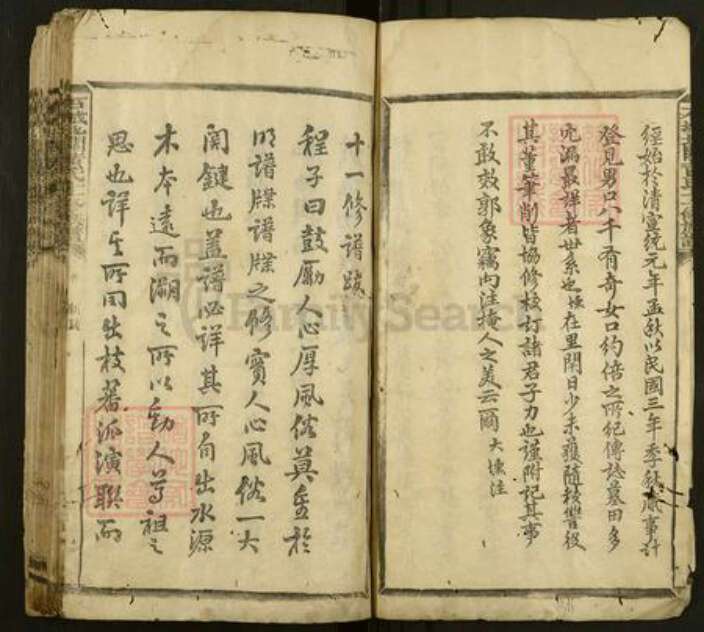 經始於清宣統元年孟秋以民國三年季秋蕆事計
登見男口八千有奇女口約倍之所紀傳誌墓田多
漏最詳者世系也墉在里閈日少未獲隨校讐役
其董筆削皆協修校訂諸君子力也謹附記其事
不敢效郭象竊向注掩人之美云爾 大墉注
十一修譜跋
程子曰鼓勵人心厚風俗莫重於
明譜牒譜牒之修實人心風俗一大
關鍵也蓋譜必詳其所自出水源
木本遠而溯之所以動人尊祖之
思也詳其所同出枝蕃派演聯而
FamilySearch